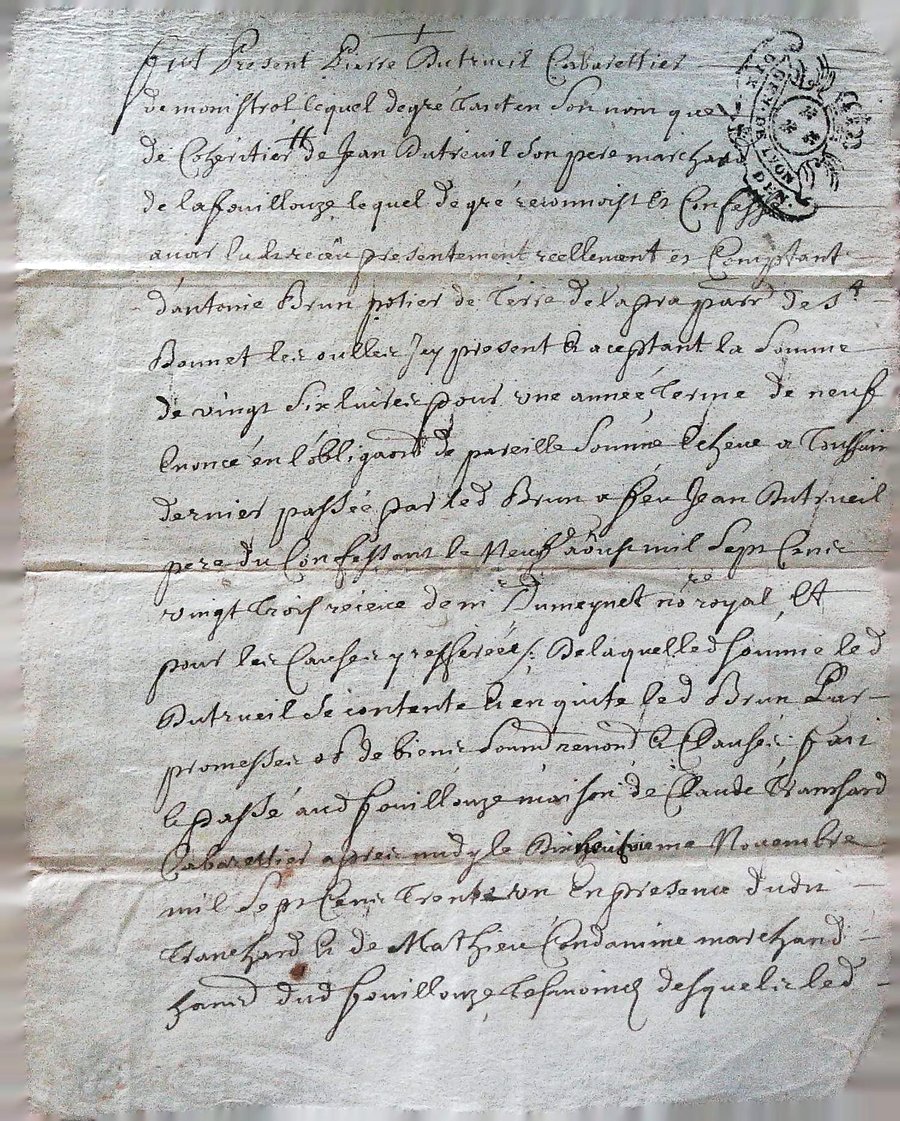 fut Present Pierre Dutreuil Cabarettier
de monistrol lequel de gré tant en son nom que
de Coheritier de Jean Dutreuil son pere marchand
de lafouillouze lequel de gré reconnoist et Confesse
avoir eu et receu presentement reellement et Comptant
d'antoine Brun potier de terre de lapra parr de st
Bonnet les oulles Icy present et aceptant la somme
de vingt six livres pour une année terme de neuf
Enoncé en l'obligaon de pareille somme Echeue a Toussain
dernier passée par led Brun a feu Jean Dutreuil
pere du Confessant le Neuf aoust mil sept Cens
vingt trois receue de me Dumeynet nore royal, Et
pour les Causes y refferées /: De laquelle d somme led
Dutreuil se contente et en quite led Brun Par
promesses ob de biens soumd renond et Clauses fait
et passé aud fouillouze maison de Claude Tranchard
Cabarettier apres midy le Dix neufvieme Novembre
mil sept Cens Trente un En presence dudit
Tranchard et de Mathieu Condamine marchand
dud fouillouze, tesmoins desquels led
GEN. DE LYON
DEN.